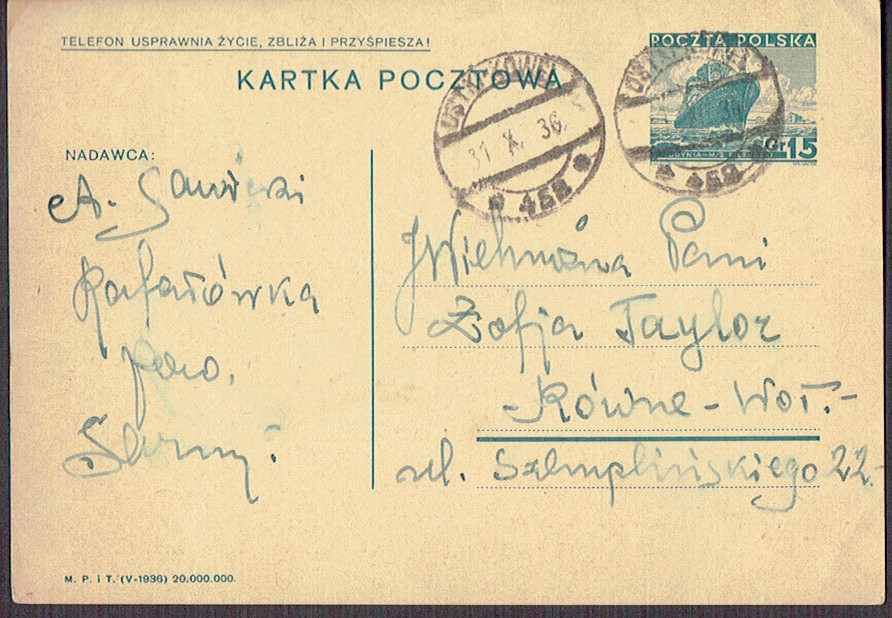 TELEFON USPRAWNIA ŻYCIE, ZBLIŻA I PRZYŚPIESZA!
KARTKA POCZTOWA
POCZTA POLSKA
GDYNIA–M/S PIŁSUDSKI
Gr 15
31 X. 36.
458
458
NADAWCA:
A.
Rafałówka
pow.
Sarny.
JWielmożna Pani
Zofja Taylor
- Równe - Woł. -
ul. Szemplińskiego 22.-
M. P. i T. (V-1936) 20.000.000.